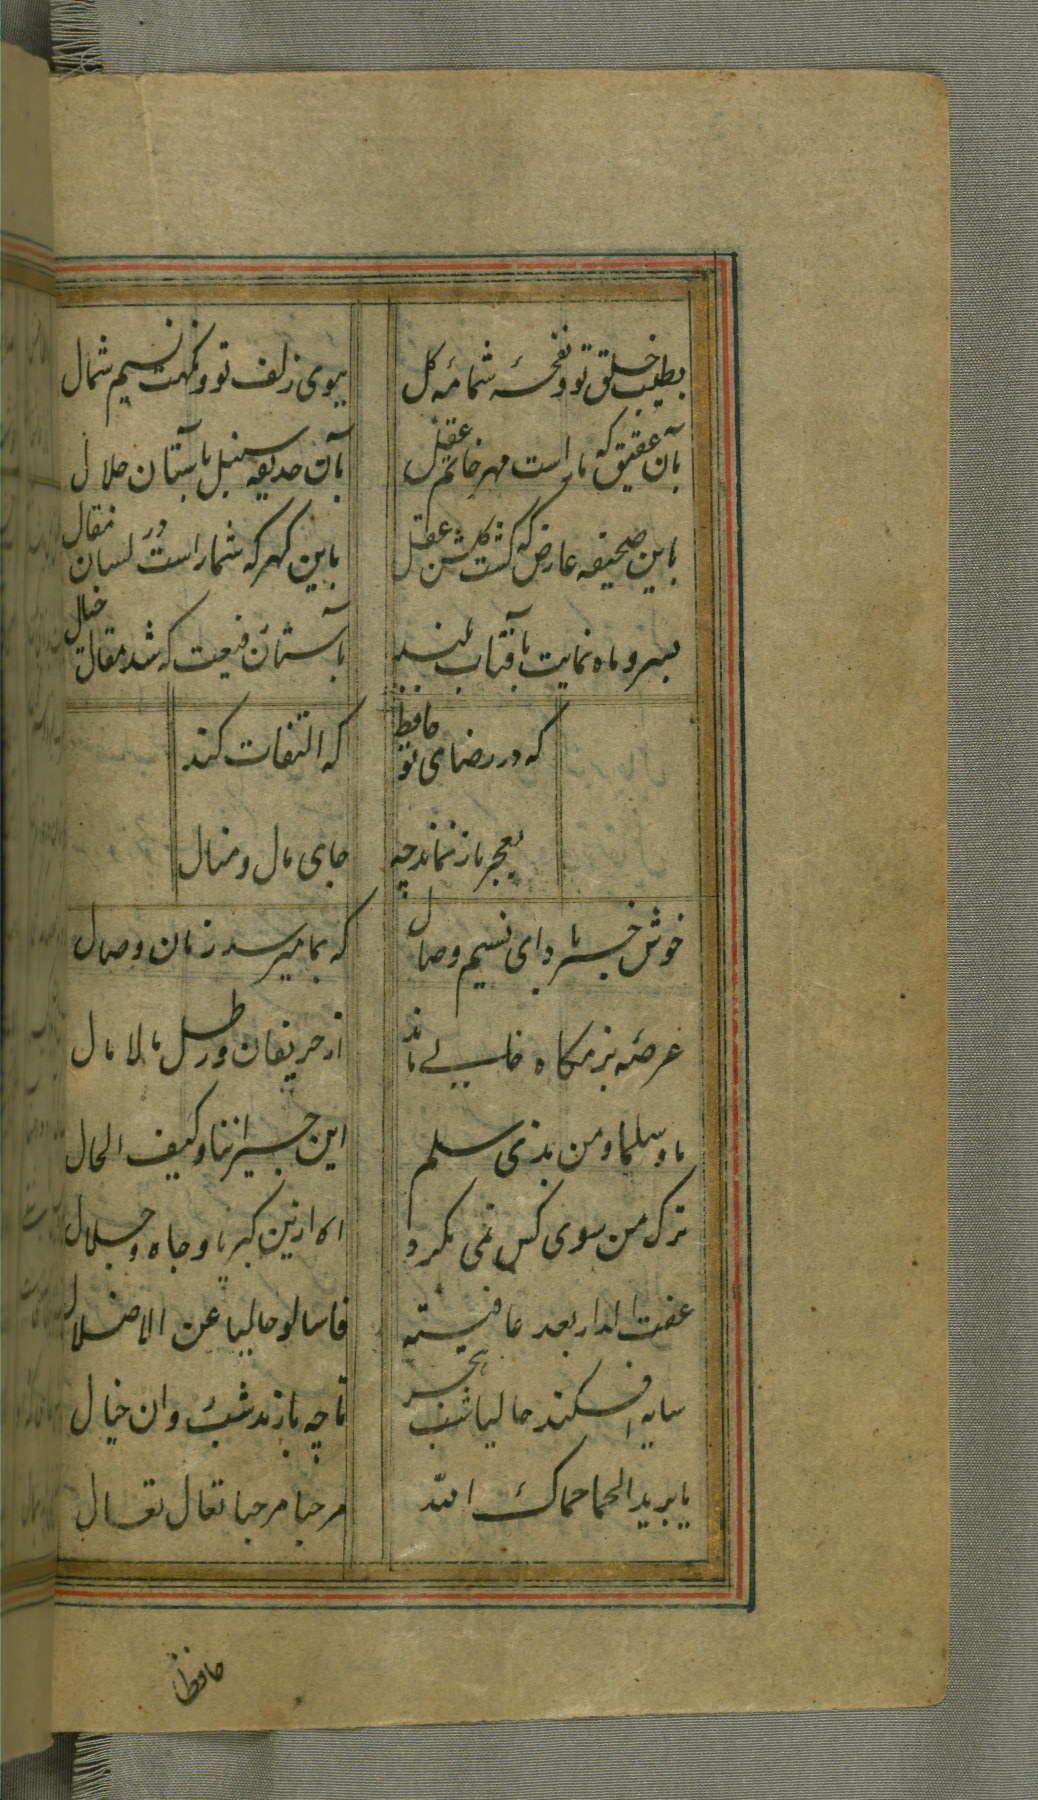 بطیب خلق تو و نفحهٔ شمامهٔ گل
ببوی زلف تو و نکهت نسیم شمال
بآن عقیق که ما راست مهر خاتم عقل
بآن حدیقه سنبل بآستان جلال
باین صحیفه عارض که گشت گلشن عقل
باین گهر که شما راست در لسان مقال
بسرو ماه نمایت بآفتاب بلند
بآستان رفیعت که شد مقال خیال
که در رضای تو حافظ
که التفات کند
بعجر باز نماند چه
جای مال و منال
خوش خبر باد ای نسیم وصال
که بما میرسد زمان وصال
عرصه بزمگاه خالی ماند
از حریفان و رطل مالامال
ما و سلما و من بذی سلم
این جیراننا و کیف الحال
ترک من سوی کس نمی نگرد
اه ازین کبریا و جاه و جلال
عفت الدار بعد عافیته
فاسالو حالیا عن الاضلال
سایه افکند حالیا شب هجر
تا چه بازند شب وان خیال
یا برید الحما حماک الله
مرحبا مرحبا تعال تعال
حافظا